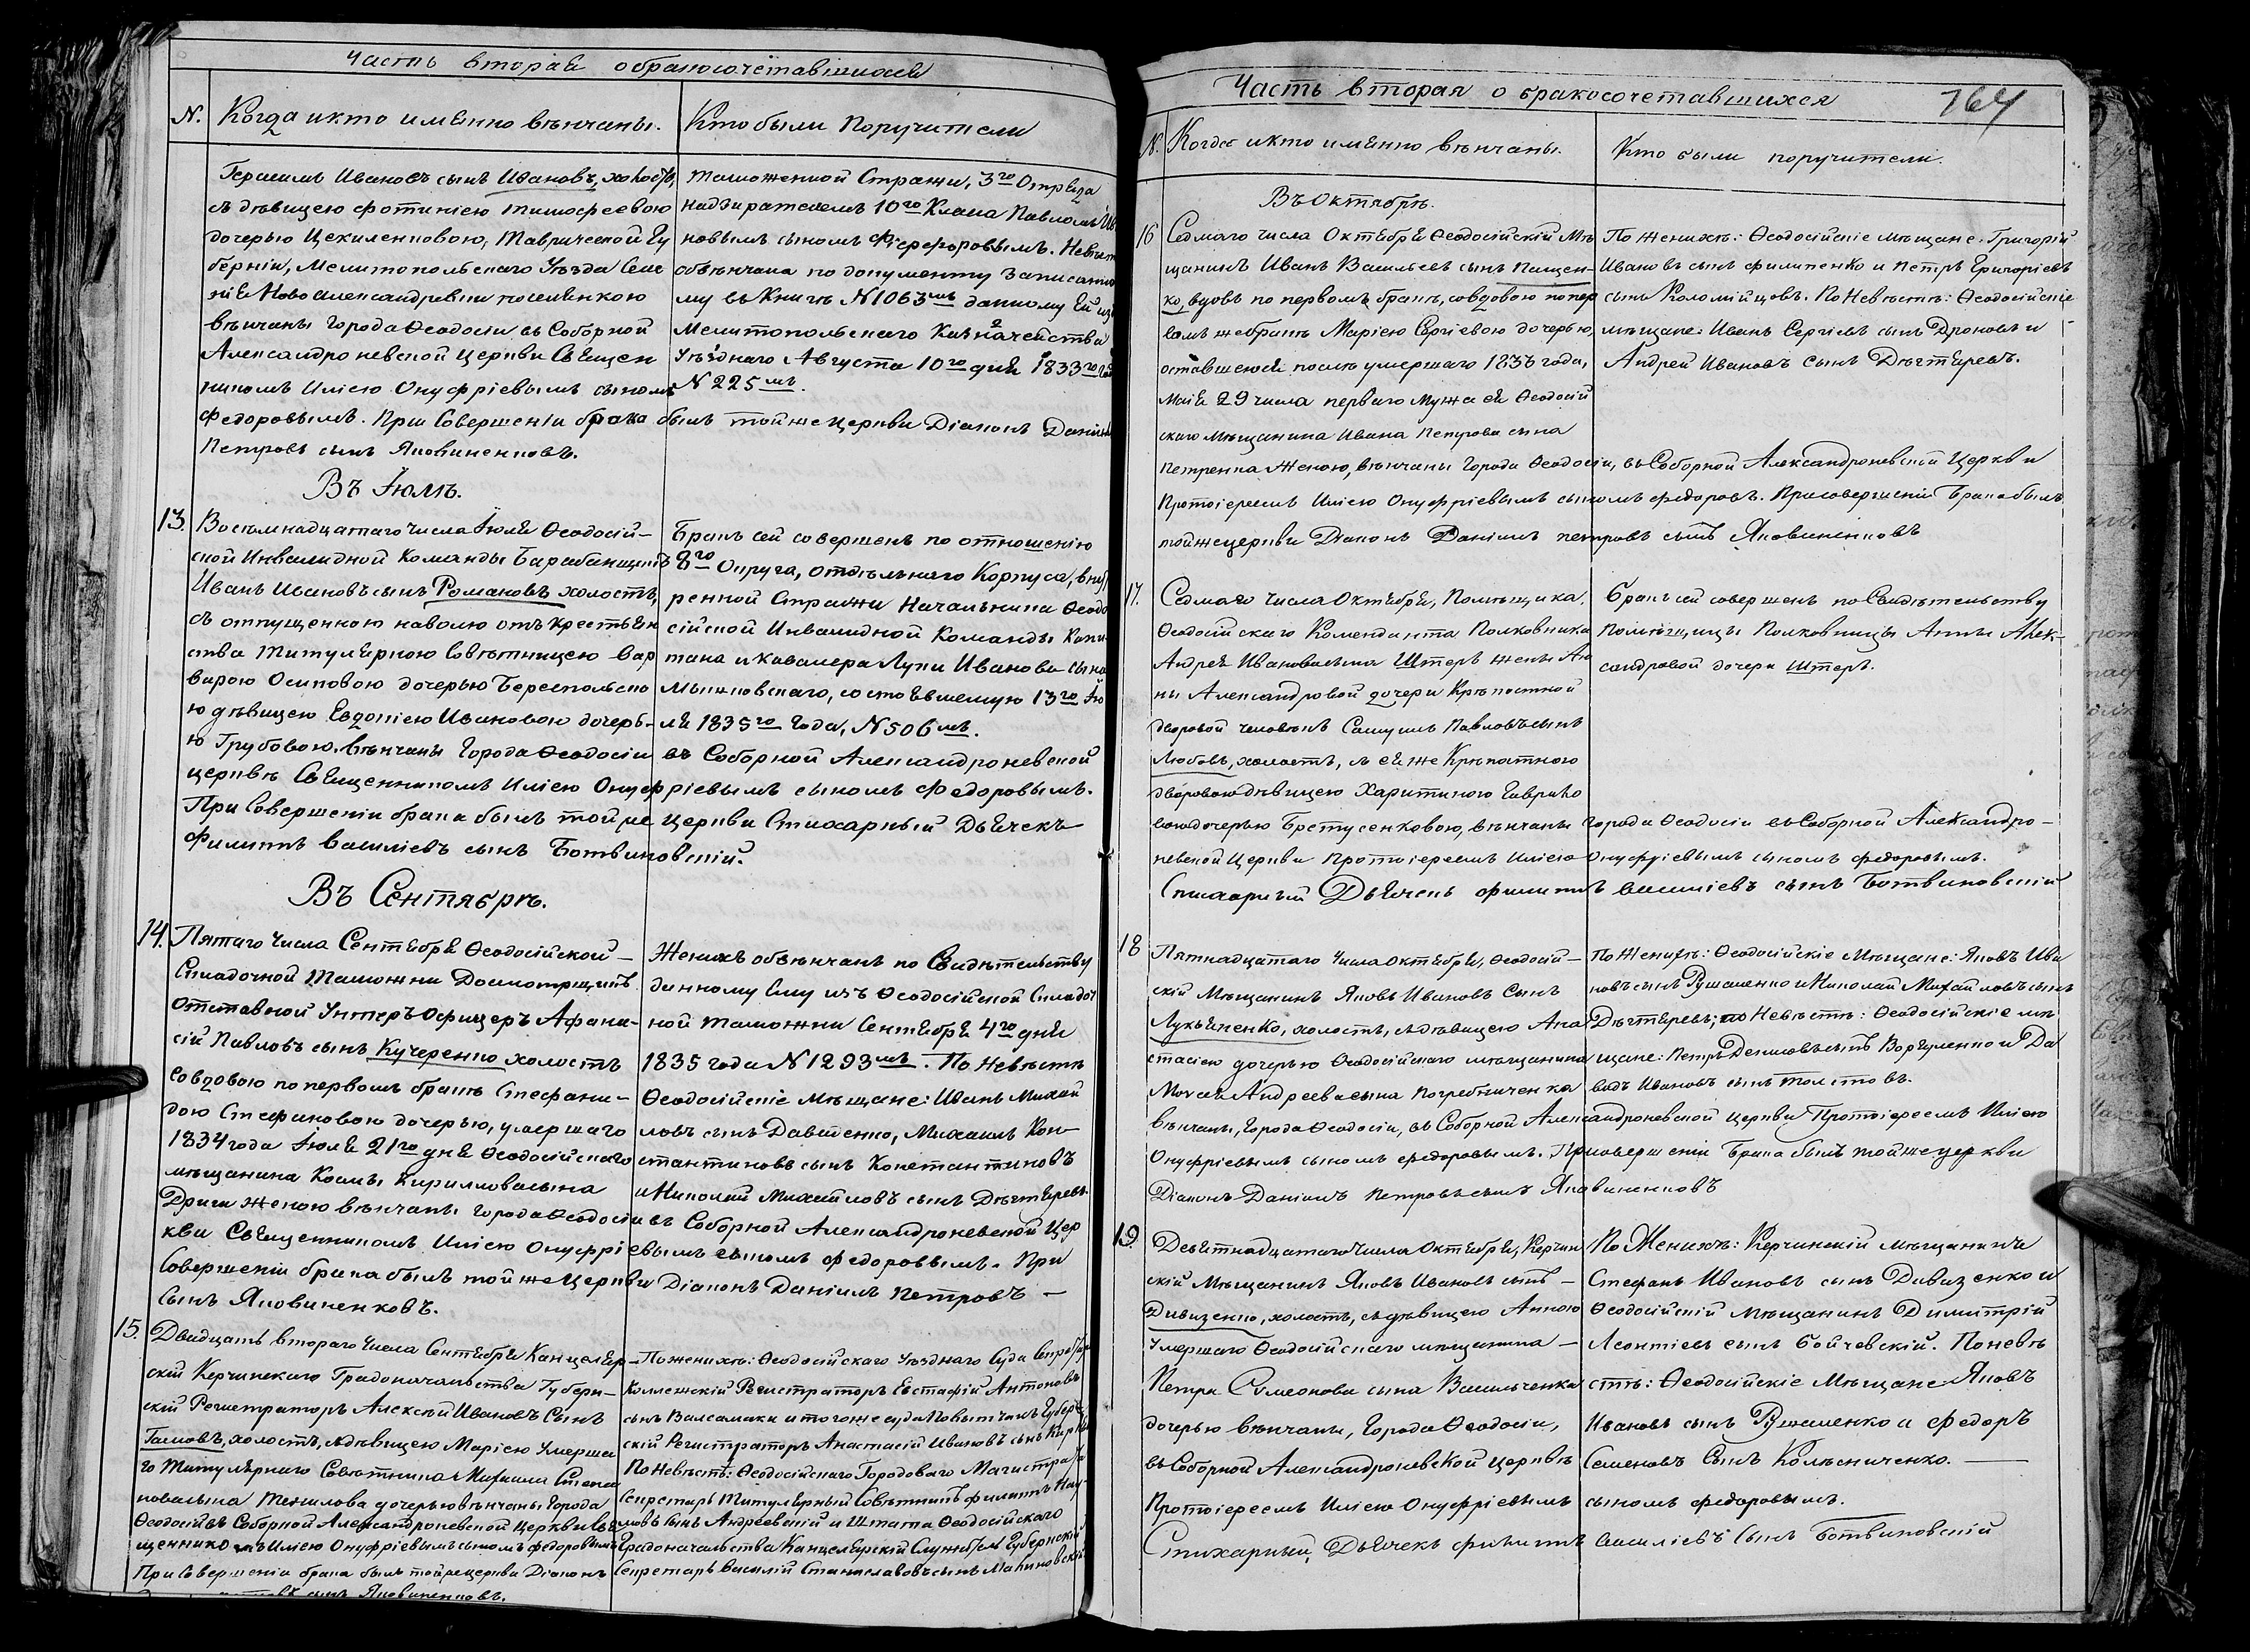 Часть вторая о бракосочетавшихся
N. Когда и кто именно вѣнчаны. Кто были Поручители
Герасимъ Ивановъ сынъ Ивановъ, холостъ,
съ дѣвицею Фотиніею Тимофеевою
дочерью Таврической Гу
берніи, Мелитопольскаго Уѣзда Селе
нія Ново Александревки поселенкою
вѣнчаны Города Ѳеодосіи въ Соборной
Александроневской Церкви Священ
никомъ Иліею Онуфріевымъ сыномъ
Федоровымъ. При Совершеніи брака былъ тойже церкви Діаконъ Даніилъ
Петровъ сынъ Яковиненковъ.
таможенной Стражи, 3го Отряда
надзирателемъ 10го Класа Павломъ Ив
новымъ сыномъ Невѣста
обвѣнчана по документу записанно
му въ Книгѣ N 1063мъ данному Ей изъ
Мелитопольскаго Казначейства
Уѣзднаго Августа 10го дня 1833го
N 225мъ.
Въ Іюлѣ.
13. Восемнадцатаго числа Іюля Ѳеодосій-
ской Инвалидной Команды Барабанщикъ
Иванъ Ивановъ сынъ Романовъ холостъ,
съ отпущенною наволю отъ крестьян
ства Титулярною Совѣтницею Вар
варою Осиповою дочерью Береспольско
ю дѣвицею Евдокіею Ивановою дочерь-
ю Грубовою. Вѣнчаны Города Ѳеодосіи въ Соборной Александроневской
церквѣ Священникомъ Иліею Онуфріевымъ сыномъ Федоровымъ.
При Совершеніи брака былъ той же церкви Стихарный Дьячекъ
Филиппъ Василіевъ сынъ Ботвиновскій.
Бракъ сей совершенъ по отношенію
8го Округа, отдѣльнаго Корпуса, внут
ренной Стражи Начальника Ѳеодо
сійской Инвалидной Команды Капи
тана и Кавалера Луки Иванова сына
состоявшемуся 13го Ію
ля 1835го года, N 506мъ.
Въ Сентябрѣ.
14. Пятаго Числа Сентября Ѳеодосійской
Складочной Таможни Досмотрщикъ
Отставной Унтеръ Офицеръ Афана-
сій Павловъ сынъ Кучеренко холостъ
совдовою по первомъ бракѣ Стефани-
дою Стефановою дочерью, умершаго
1834 года Іюля 21го дня Ѳеодосійскаго
мѣщанина Космы Кирилловасына
Дриги женою вѣнчаны Города Ѳеодосіи въ Соборной Александроневской Цер
кви Священникомъ Иліею Онуфріевымъ сыномъ Федоровымъ. При
Совершеніи брака былъ тойже Церкви Діаконъ Даніилъ Петровъ
Сынъ Яковиненковъ.
Женихъ обвѣнчанъ по Свидѣтельству
данному Ему изъ Ѳеодосійской Складоч
ной таможни Сентября 4го дня
1835 года N 1293мъ. По Невѣстѣ
Ѳеодосійскіе Мѣщане: Иванъ Михай
ловъ сынъ Давиденко, Михаилъ Кон
стантиновъ сынъ Константиновъ
и Николай Михайловъ сынъ Дѣхтяревъ
15. Двадцать втораго Числа Сентября Канцеляр
скій Керчинскаго Градоначальства Губерн-
скій Регистраторъ Алексѣй Ивановъ Сынъ
холостъ, съ дѣвицею Маріею Умерша
го Титулярнаго Совѣтника Михаила Степа
новасына дочерью вѣнчаны Города
Ѳеодосіи въ Соборной Александроневской Церкви Свя
щенникомъ Иліею Онуфріевымъ сыномъ Федоровымъ
При Совершеніи брака былъ тойже церкви Діаконъ
сынъ Яковиненковъ.
По женихѣ: Ѳеодосійскаго Уѣзднаго Суда Секретарь
Коллежскій Регистраторъ Евстафій Антоновъ
сынъ Валсамаки и тогоже суда Повытчикъ Губерн
скій Регистраторъ Анастасій Ивановъ сынъ
По Невѣстѣ: Ѳеодосійскаго Городоваго Магистрата
Секретарь Титулярный Совѣтникъ Филиппъ
сынъ Андреевскій и Штата Ѳеодосійскаго
Градоначальства Канцелярскій Служитель Губернскій
Секретарь Василій Станиславовъ сынъ
Часть вторая о бракосочетавшихся 164
N. Когда и кто именно вѣнчаны. Кто были поручители.
Въ Октябрѣ.
16 Седмаго числа Октября Ѳеодосійскій Мѣ
щанинъ Иванъ Васильевъ сынъ Пащен-
ко, вдовъ по первомъ бракѣ, совдовою попер
вомъ же бракѣ Маріею Сергіевою дочерью,
оставшеюся послѣ умершаго года,
Маія 29 числа перваго Мужа ея Ѳеодосій
скаго Мѣщанина Ивана сына
Петренка Женою, вѣнчаны города Ѳеодосіи, въ Соборной Александроневской Церкви
Протоіереемъ Иліею Онуфріевымъ сыномъ Федоровъ. Присовершеніи Брака былъ
тойже церкви Діаконъ Даніилъ Петровъ сынъ Яковиненковъ
По Женихѣ: Ѳеодосійскіе мѣщане: Григорій
Ивановъ сынъ Филипенко и Петръ Григоріевъ
сынъ Коломійцовъ. По Невѣстѣ: Ѳеодосійскіе
мѣщане: Иванъ Сергіевъ сынъ Дроновъ и
Андрей Ивановъ Сынъ Дѣхтяревъ.
17. Седмаго Числа Октября, Помѣщика,
Ѳеодосійскаго Коменданта Полковника
Андрея Ивановасына Штеръ жены Ан
ны Александровой дочери Крѣпостной
дворовой человѣкъ Самуилъ Павловъ сынъ
Любовъ, холостъ, съ ея же Крѣпостного
дворовою дѣвицею Харитиною Гаврило
вою дочерью Бретусенковою, вѣнчаны города Ѳеодосіи въ Соборной Александро-
невской Церкви Протоіереемъ Иліею Онуфріевымъ сыномъ Федоровымъ.
Стихарный Дьячекъ Филиппъ Василіевъ сынъ Ботвиновскій
Бракъ сей совершенъ по Свидѣтельству
Помѣщицы Полковницы Анны Алек-
сандровой дочери Штеръ.
18 Пятнадцатаго Числа Октября, Ѳеодосій-
скій Мѣщанинъ Яковъ Ивановъ Сынъ
Лукьяненко, холостъ, съ дѣвицею Ана
стасіею дочерью Ѳеодосійскаго мѣщанина
Андреевасына Погребниченка
вѣнчаны, города Ѳеодосіи, въ Соборной Александроневской Церкви Протоіереемъ Иліею
Онуфріевымъ сыномъ Федоровымъ. Присовершеніи Брака былъ тойже церкви
Діаконъ Даніилъ Петровъ сынъ Яковиненковъ
По Женихѣ: Ѳеодосійскіе Мѣщане: Яковъ Ива
новъ сынъ и Николай Михайловъ сынъ
Дѣхтяревъ; по Невѣстѣ: Ѳеодосійскіе мѣ
щане: Петръ сынъ и Да
видъ Ивановъ сынъ Толстовъ.
19. Девятнадцатаго Числа Октября, Керчин
скій Мѣщанинъ Яковъ Ивановъ сынъ
холостъ, съ дѣвицею Анною
Умершаго Ѳеодосійскаго мѣщанина
Петра Симеонова сына Васильченка
дочерью вѣнчаны, Города Ѳеодосіи,
въ Соборной Александроневской Церквѣ
Протоіереемъ Иліею Онуфріевымъ сыномъ Федоровымъ.
Стихарный Дьячекъ Филиппъ Василіевъ Сынъ Ботвиновскій
По Женихѣ: Керчинскій мѣщанинъ
Стефанъ Ивановъ сынъ и
Ѳеодосійскій Мѣщанинъ Димитрій
Леонтіевъ сынъ Бойчевскій. По невѣ
стѣ: Ѳеодосійскіе Мѣщане Яковъ
Ивановъ сынъ и Федоръ
Семеновъ Сынъ Колѣсниченко.